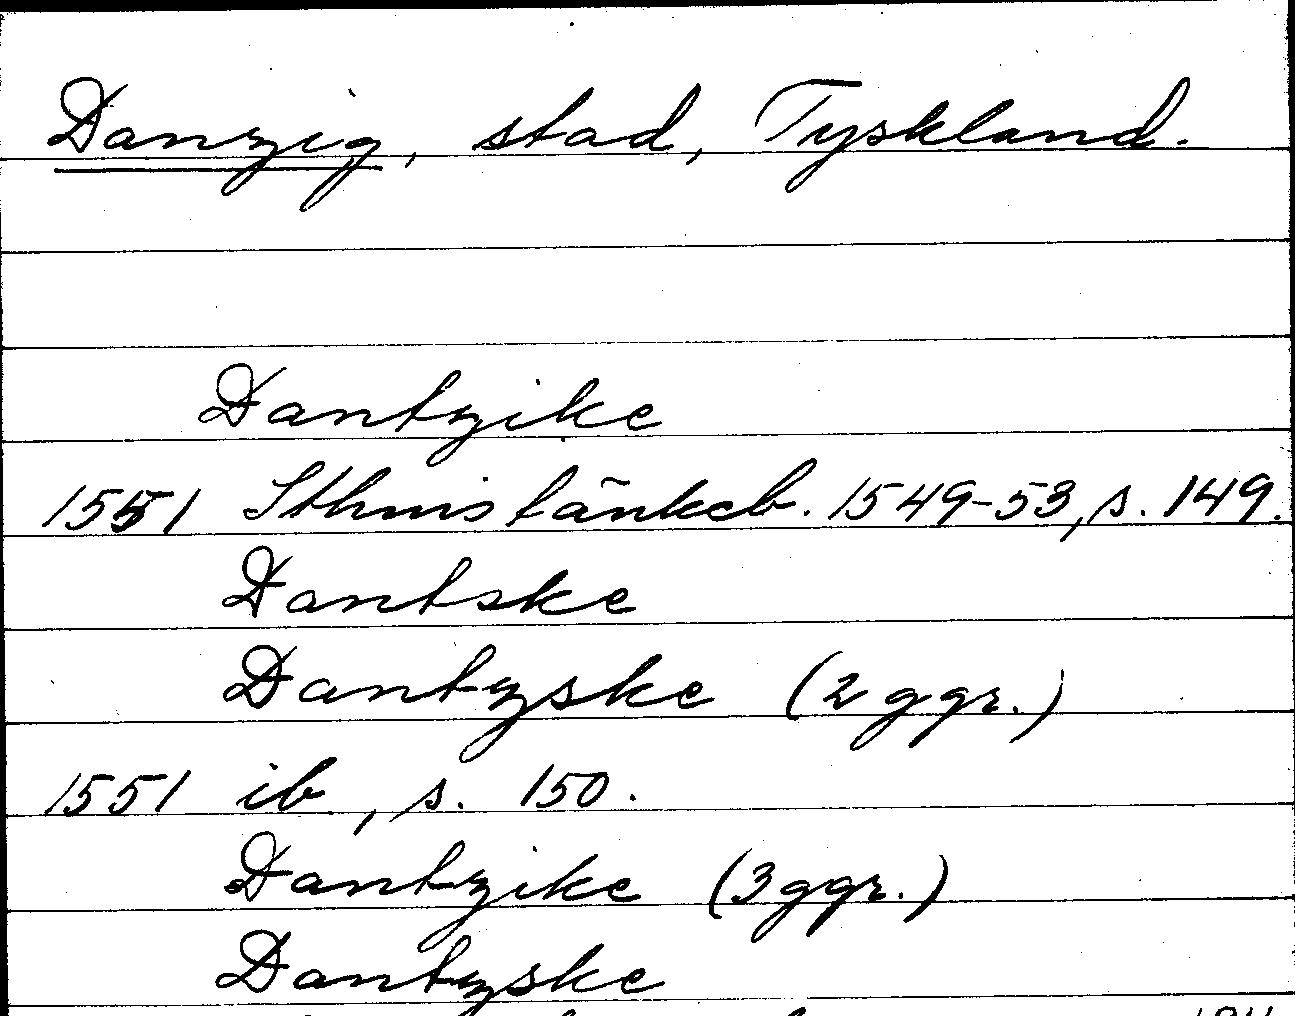 Danzig, stad, Tyskland.
Dantzike
1551 Sthms tänkeb. 1549-53, s. 149.
Dantske
Dantzske (2 ggr.)
1551 ib, s. 150.
Dantzike (3 ggr.)
Dantzske